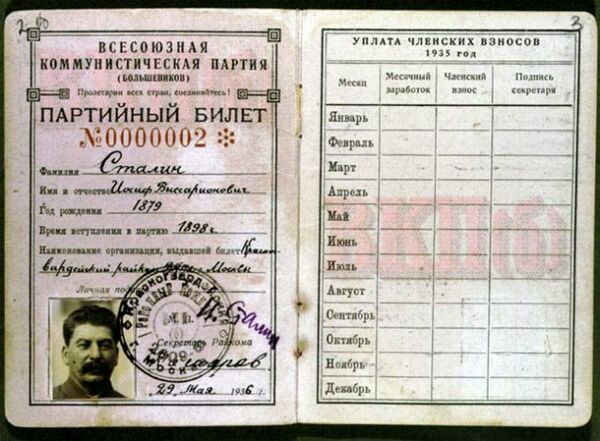 2
ВСЕСОЮЗНАЯ
КОММУНИСТИЧЕСКАЯ ПАРТИЯ
(БОЛЬШЕВИКОВ)
Пролетарии всех стран, соединяйтесь!
ПАРТИЙНЫЙ БИЛЕТ
№0000002
Фамилия Сталин
Имя и отчество Иосиф Виссарионович
Год рождения 1879
Время вступления в партию 1898г.
Наименование организации, выдавшей билет Красно-
вардейский райком г. Москвы
Личная
М. П.
Секретарь Райкома
29 Мая 1936 г.
3
УПЛАТА ЧЛЕНСКИХ ВЗНОСОВ
1935 год
Месяц Месячный заработок Членский взнос Подпись секретаря
Январь
Февраль
Март
Апрель
Май
Июнь
Июль
Август
Сентябрь
Октябрь
Ноябрь
Декабрь
ВКП(б)